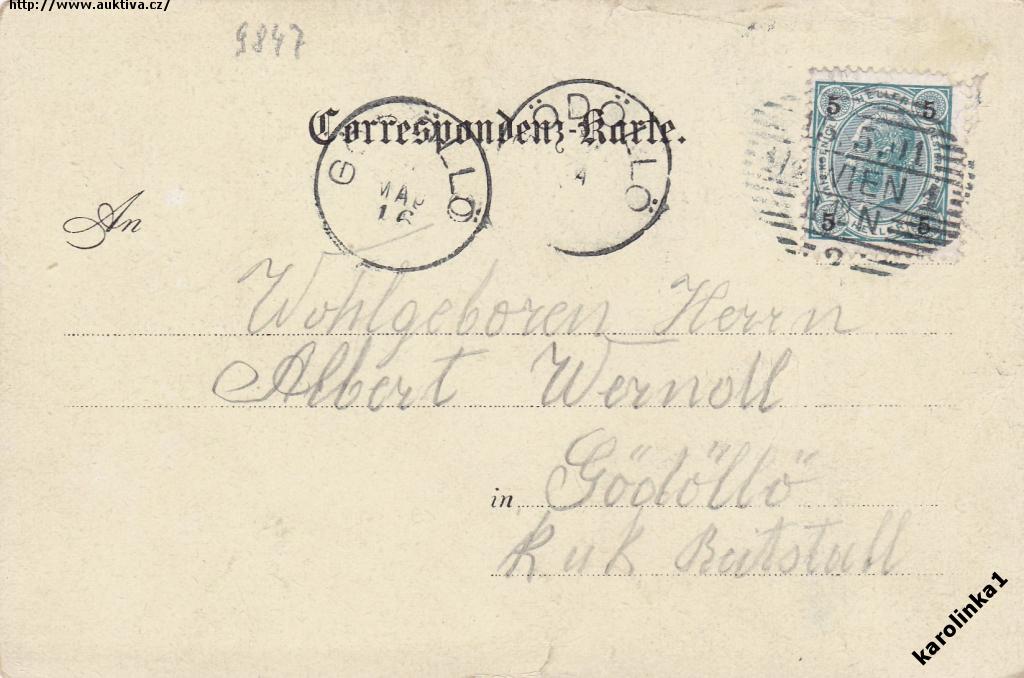 http://www.auktiva.cz/
9847
Correspondenz-Karte.
GÖDÖLLÖ
GÖDÖLLÖ
5 HELLER 5
5 HELLER 5
WIEN
An
Wohlgeboren Herrn
Albert Werndl
in Gödöllö
k u k Reitstall
karolinka1